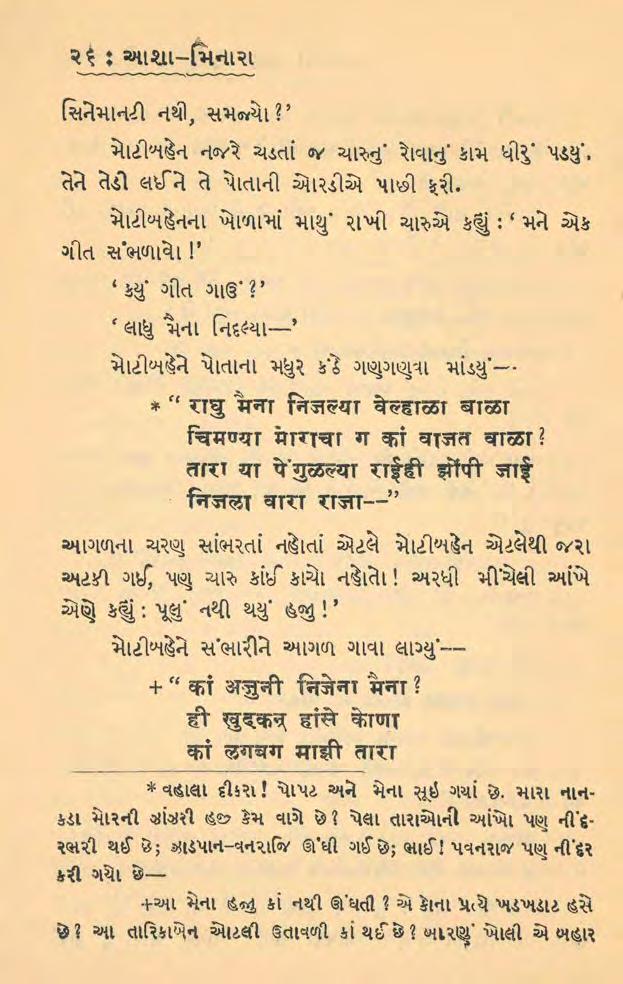 ૨૬ : આશા–મિનારા
સિનેમાનટી નથી, સમજ્યો ?’
મોટીબહેન નજરે ચડતાં જ ચારુનું રોવાનું કામ ધીરું પડયું.
તેને તેડી લઈને તે પોતાની ઓરડીએ પાછી ફરી.
મોટીબહેનના ખોળામાં માથું રાખી ચારુએ કહ્યું : ‘ મને એક
ગીત સંભળાવો !’
‘ કયું ગીત ગાઉં ?’
‘ લાધુ મૈના નિદલ્યા—’
મોટીબહેને પોતાના મધુર કંઠે ગણગણવા માંડયું—
* “ राघु मैना निजल्या वेल्हाळा बाळा
चिमण्या मोराचा ग कां वाजत वाळा ?
तारा या पेंगुळल्या राईही झोंपी जाई
निजला वारा राजा--”
આગળના ચરણ સાંભરતાં નહોતાં એટલે મોટીબહેન એટલેથી જરા
અટકી ગઈ, પણ ચારુ કાંઈ કાચો નહોતો ! અરધી મીંચેલી આંખે
એણે કહ્યું : પૂલું નથી થયું હજુ !’
મોટીબહેને સંભારીને આગળ ગાવા લાગ્યું--
+ “ कां अजुनी निजेना मैना ?
ही खुदकन् हांसे कोणा
कां लगबग माझी तारा
* વહાલા દીકરા ! પોપટ અને મેના સૂઇ ગયાં છે. મારા નાન-
કડા મોરની ઝાંઝરી હજી કેમ વાગે છે ? પેલા તારાઓની આંખો પણ નીંદ-
રભરી થઈ છે; ઝાડપાન–વનરાજિ ઊંઘી ગઈ છે; ભાઈ ! પવનરાજ પણ નીંદર
કરી ગયો છે—
+આ મેના હજુ કાં નથી ઊંઘતી ? એ કોના પ્રત્યે ખડખડાટ હસે
છે ? આ તારિકાબેન એટલી ઉતાવળી કાં થઈ છે ? બારણું ખોલી એ બહાર